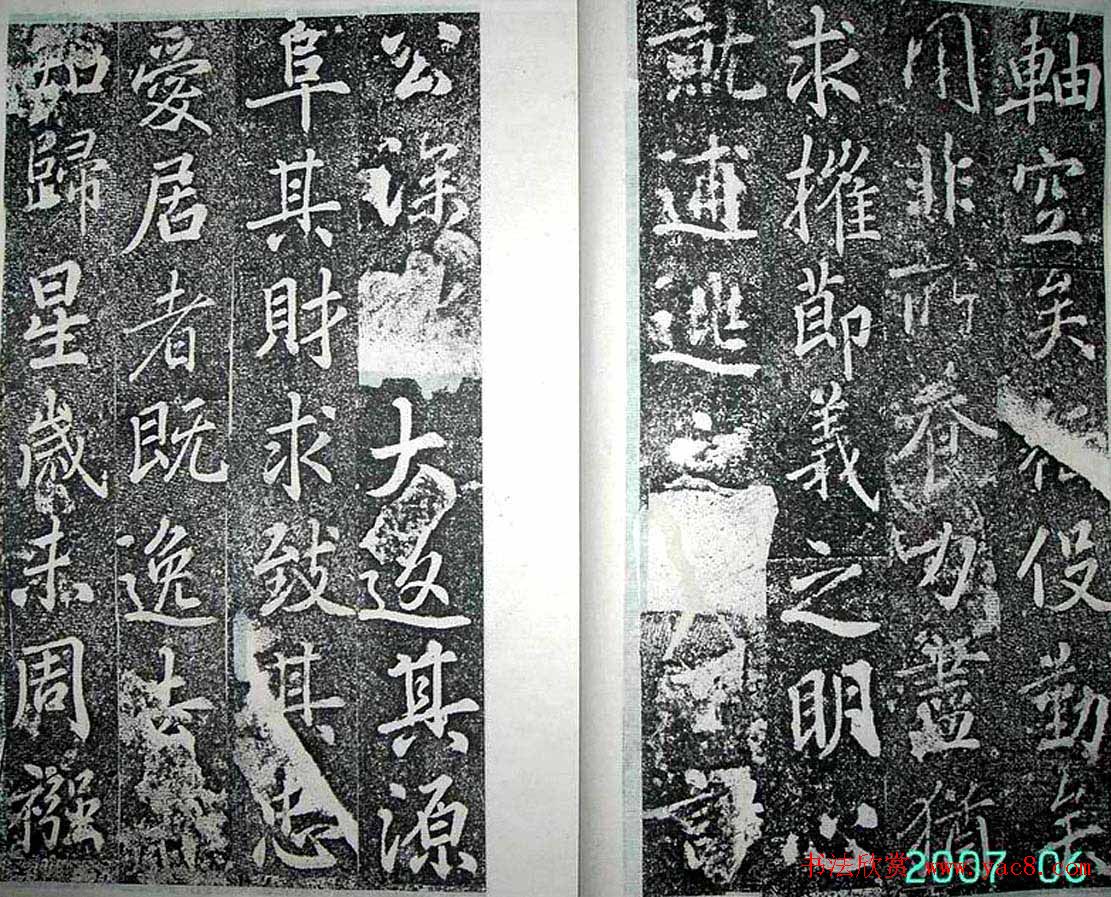 軸空矣役勤矣
用非所養功盡猶
求摧節義之明
就逋逃之討
公深大返其源
阜其財求致其忠
愛居者既逸去
知歸星歲未周襁
书法欣赏 www.yac8.com
2007 06